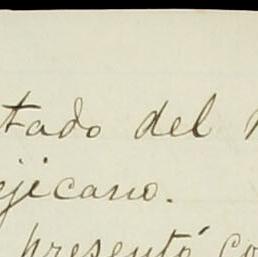 tado del
ejicano.
presentó co